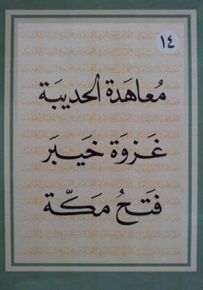 ١٤
مُعَاهَدَة الحديبَة
غَزوَة خَيبَر
فَتحُ مَكّة